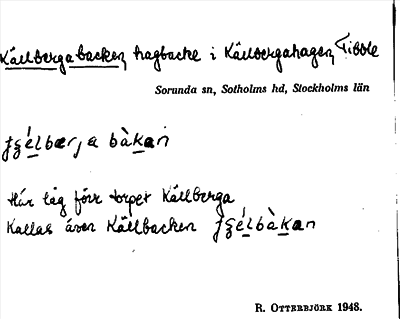 Källbergabacken, hagbacke i Källbergahagen, Tibble
Sorunda sn, Sotholms hd, Stockholms län
Här låg förr torpet Källberga
Kallas även Källbacken
R. Otterbjörk 1948.